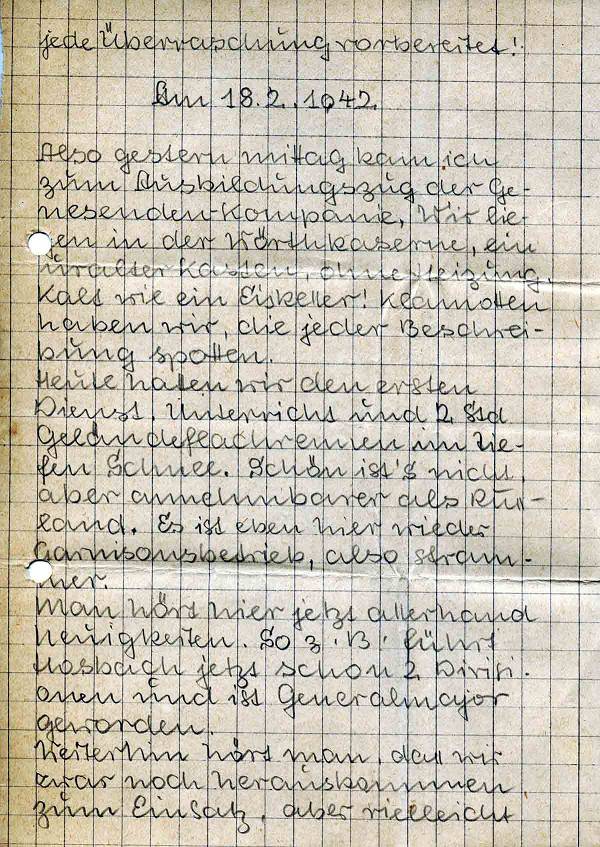 jede Überraschung vorbereitet!
Am 18.2.1942.
Also gestern mittag kam ich
zum Ausbildungszug der Ge-
nesenden-Kompanie. Wir lie-
gen in der Wörthkaserne, ein
uralter Kasten, ohne Heizung.
Kalt wie ein Eiskeller! Klamotten
haben wir, die jeder Beschrei-
bung spotten.
Heute haten wir den ersten
Dienst. Unterricht und 2 Std
Geländeflachrennen im tie-
fen Schnee. Schön ist's nicht,
aber annehmbarer als Ruß-
land. Es ist eben hier wieder
Garnisonsbetrieb, also stram-
mer.
Man hört hier jetzt allerhand
Neuigkeiten. So z.B. führt
Hosbach jetzt schon 2 Divisi-
onen und ist Generalmajor
geworden.
Weiterhin hört man, daß wir
zwar noch herauskommen
zum Einsatz, aber vielleicht